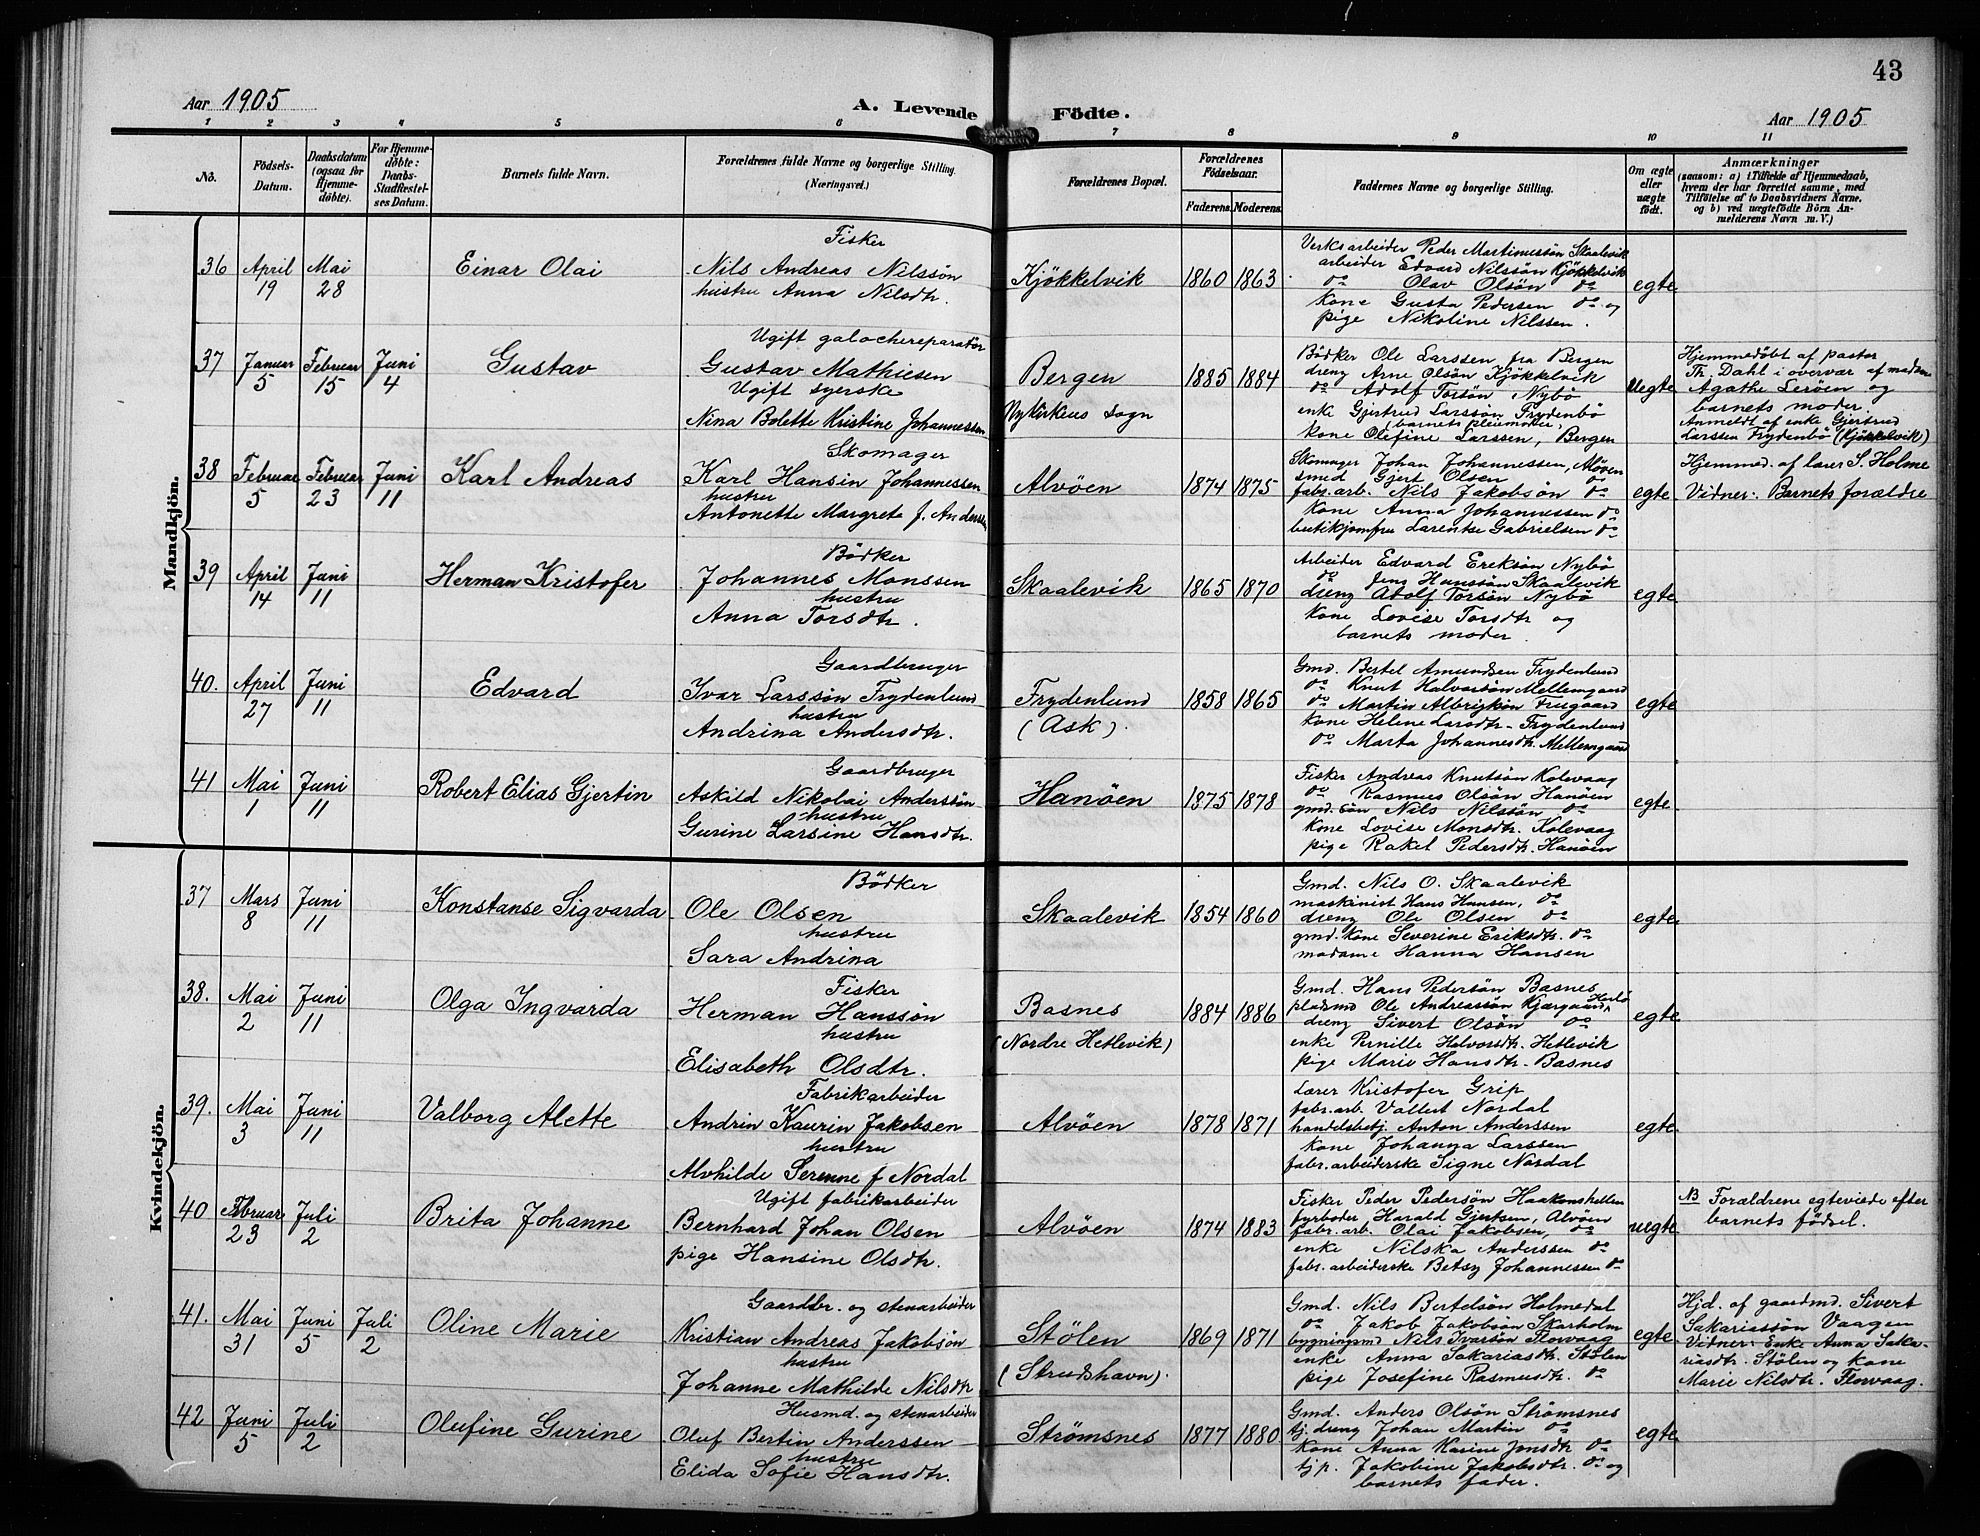 43
Aar 1905
A. Levende Födte.
Aar 1905
1 2 3 4 5 6 7 8 9 10 11
No.
Födsels-Datum.
Daabsdatum (ogsaa for Hjemmedöbte).
For Hjemmedöbte: Daabs-Stadfæstelses Datum.
Barnets fulde Navn.
Forældrenes fulde Navne og borgerlige Stilling. (Næringsvei.)
Forældrenes Bopæl.
Forældrenes Födselsaar.
Faderens. Moderens.
Faddernes Navne og borgerlige Stilling.
Om ægte eller uægte födt.
Anmærkninger
(saasom: a) i Tilfælde af Hjemmedaab, hvem der har forrettet samme, med Tilföielse af to Daabsvidners Navne, og b) ved uægtefödte Börn Anmelderens Navn m. V.)
Mandkjön.
36
April 19
Mai 28
Einar Olai
Fisker
Nils Andreas Nilssön
hustru Anna Nilsdtr.
Kjøkkelvik
1860 1863
Verksarbeider Peder Martinussön Skaalevik
arbeider Edvard Nilssön Kjøkkelvik
do Olav Olsön do
kone Gusta Pedersen do og
pige Nikoline Nilssen.
egte
37
Januar 5
Februar 15
Juni 4
Gustav
Ugift galochereparatör
Gustav Mathiesen
Ugift syerske
Nina Bolette Kristine Johannessen
Bergen
Nykirkens sogn
1885 1884
Bödker Ole Larssen fra Bergen
dreng Arne Olsön Kjøkkelvik
do Adolf Torsön, Nybö
enke Gjertrud Larssön Frydenbö
(barnets pleiemoder)
kone Olefine Larssen, Bergen
Uegte
Hjemmedöbt af pastor
Th. Dahl i overvær af madam
Agathe Leröen og
barnets moder.
Anmeldt af enke Gjertrud
Larssen Frydenbö (Kjøkkelvik)
38
Februar 5
Februar 23
Juni 11
Karl Andreas
Skomager
Karl Hansin Johannessen
hustru
Antonette Margrete f. Anderssen
Alvöen
1874 1875
Skomager Johan Johannessen, Alvöen
smed Gjert Olsen do
fabr. arb. Nils Jakobsön do
kone Anna Johannessen do
butikjomfru Larentse Gabrielsen do
egte
Hjemmed. af lærer S. Holme
Vidner: Barnets forældre
39
April 14
Juni 11
Herman Kristofer
Bödker
Johannes Monssen
hustru
Anna Torsdtr.
Skaalevik
1865 1870
Arbeider Edvard Eriksön Nybö
do Jens Hanssön Skaalevik
dreng Adolf Torsön Nybö
kone Lovise Torsdtr og
barnets moder.
egte
40.
April 27
Juni 11
Edvard
Gaardbruger
Ivar Larssön Frydenlund
hustru
Andrina Andersdtr.
Frydenlund
(Ask).
1858 1865
Gmd. Bertel Amundsen Frydenlund
do Knut Halvorsön Mellemgaard
do Martin Albrigtsön Trugaard
kone Helene Larsdtr. Frydenlund
do Marta Johannesdtr. Mellemgaard
egte
41
Mai 1
Juni 11
Robert Elias Gjertin
Gaardbruger
Askild Nikolai Anderssön
hustru
Gurine Larsine Hansdtr.
Hanöen
1875 1878
Fisker Andreas Knutsön Kolevaag
do Rasmus Olsön Hanöen
gmd. sön Nils Nilssön do
kone Lovise Monsdtr. Kolevaag
pige Rakel Pedersdtr. Hanöen
egte
Kvindekjön.
37
Mars 8
Juni 11
Konstanse Sigvarda
Bödker
Ole Olsen
hustru
Sara Andrina
Skaalevik
1854 1860
Gmd. Nils O. Skaalevik
maskinist Hans Hansen, do
dreng Ole Olsen do
gmd. kone Severine Eriksdtr. do
madame Hanna Hansen
egte
38.
Mai 2
Juni 11
Olga Ingvarda
Fisker
Herman Hanssön
hustru
Elisabeth Olsdtr.
Basnes
(Nordre Hetlevik)
1884 1886
Gmd. Hans Pedersön Basnes
pladsmd Ole Andreassön Kjærgaard, Herlö
dreng Sivert Olsön do
enke Pernille Halvorsdtr. Hetlevik
pige Marie Hansdtr. Basnes
egte
39.
Mai 3
Juni 11
Valborg Alette
Fabrikarbeider
Andrin Kaurin Jakobsen
hustru
Alvhilde Serenne f Nordal
Alvöen
1878 1871
Lærer Kristofer Grip
fabr. arb. Vallert Nordal
handelsbetj. Anton Anderssen
kone Johanna Larssen
fabr. arbeiderske Signe Nordal
egte
40
Februar 23
Juli 2
Brita Johanne
Ugift fabrikarbeider
Bernhard Johan Olsen
pige Hansine Olsdtr.
Alvöen
1874 1883
Fisker Peder Pedersön Haakonshellen
fyrböder Harald Gjertsen, Alvöen
fabr. arb. Olai Jakobsen, do
enke Nilska Anderssen do
fabr. arbeiderske Betsy Johannessen do
uegte
NB Forældrene egteviede efter
barnets födsel.
41.
Mai 31
Juni 5
Juli 2
Oline Marie
Gaardbr. og stenarbeider
Kristian Andreas Jakobsön
hustru
Johanne Mathilde Nilsdtr
Stölen
(Strudshavn).
1869 1871
Gmd. Nils Bertelsön Holmedal
do Jakob Jakobsön Skarholm
bygningsmd Nils Ivarsön Florvaag
enke Anna Sakariasdtr. Stölen
pige Josefine Rasmusdtr. do
egte
Hjd. af gaardmd. Sivert
Sakariassön Vaagen
Vidner: Enke Anna Saka-
riasdtr. Stölen og kone
Marie Nilsdtr. Florvaag.
42
Juni 5
Juli 2
Olufine Gurine
Husmd. og stenarbeider
Oluf Bertin Anderssen
hustru
Elida Sofie Hansdtr.
Strömsnes
1877 1880
Gmd. Anders Olsön Strömsnes
tj. dreng Johan Martin do
kone Anna Karine Jonsdtr do
tjp. Jakobine Jakobsdtr. do og
barnets fader.
egte